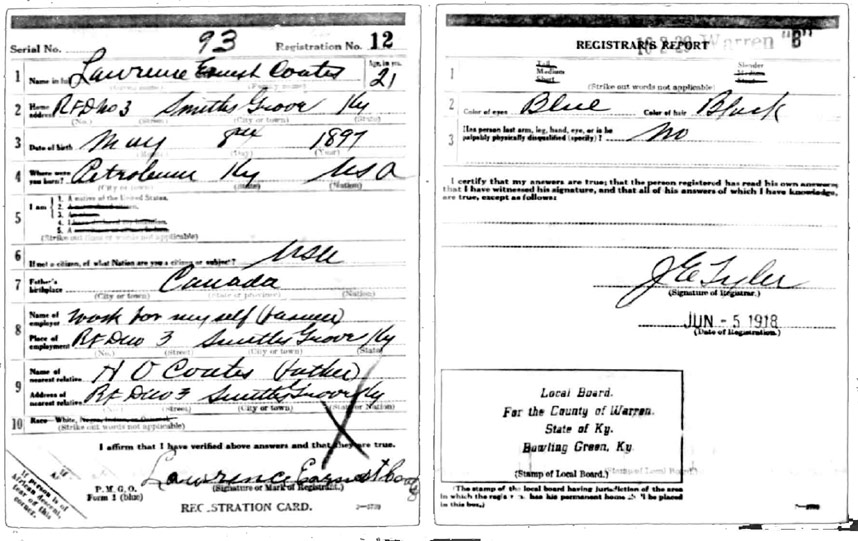 Serial No. 93 Registration No. 12
1 Name in full Lawrence Ernest Coates Age, in yrs. 21
(Family name)
2 Home address RFD No 3 Smiths Grove Ky
(No.) (Street) (City or town) (State)
3 Date of birth May 8th 1897
(Day) (Year)
4 Where were you born? Petroleum Ky USA
(City or town) (State) (Nation)
5 I am 1. A native of the United States.
2.
3.
4.
5. A
(Strike out lines or words not applicable)
6 If not a citizen, of what Nation are you a citizen or subject? USA
7 Father's birthplace Canada
(City or town) (State or province) (Nation)
8 Name of employer work for myself (farmer)
Place of employment RFD No 3 Smiths Grove Ky
(No.) (Street) (City or town) (State)
9 Name of nearest relative H O Coates (father)
Address of nearest relative RFD No 3 Smiths Grove Ky
(Street) (City or town) (State or Nation)
10 Race— White,
(Strike out words not applicable)
I affirm that I have verified above answers and that they are true.
Lawrence Earnest Coates
P. M. G. O.
Form 1 (blue)
(Signature or Mark of Registrant.)
REGISTRATION CARD.
If person is of African descent, tear off this corner.
16-2-29 Warren "B"
REGISTRAR'S REPORT
1 Tall Slender
Medium Medium
Short Stout
(Strike out words not applicable)
2 Color of eyes Blue Color of hair Black
3 Has person lost arm, leg, hand, eye, or is he palpably physically disqualified (specify)? No
I certify that my answers are true; that the person registered has read his own answers;
that I have witnessed his signature, and that all of his answers of which I have knowledge,
are true, except as follows:
J E Tyler
(Signature of Registrar.)
JUN - 5 1918
(Date of Registration.)
Local Board.
For the County of Warren.
State of Ky.
Bowling Green, Ky.
(Stamp of Local Board.)
(The stamp of the local board having jurisdiction of the area
in which the has his permanent home be placed
in this box.)